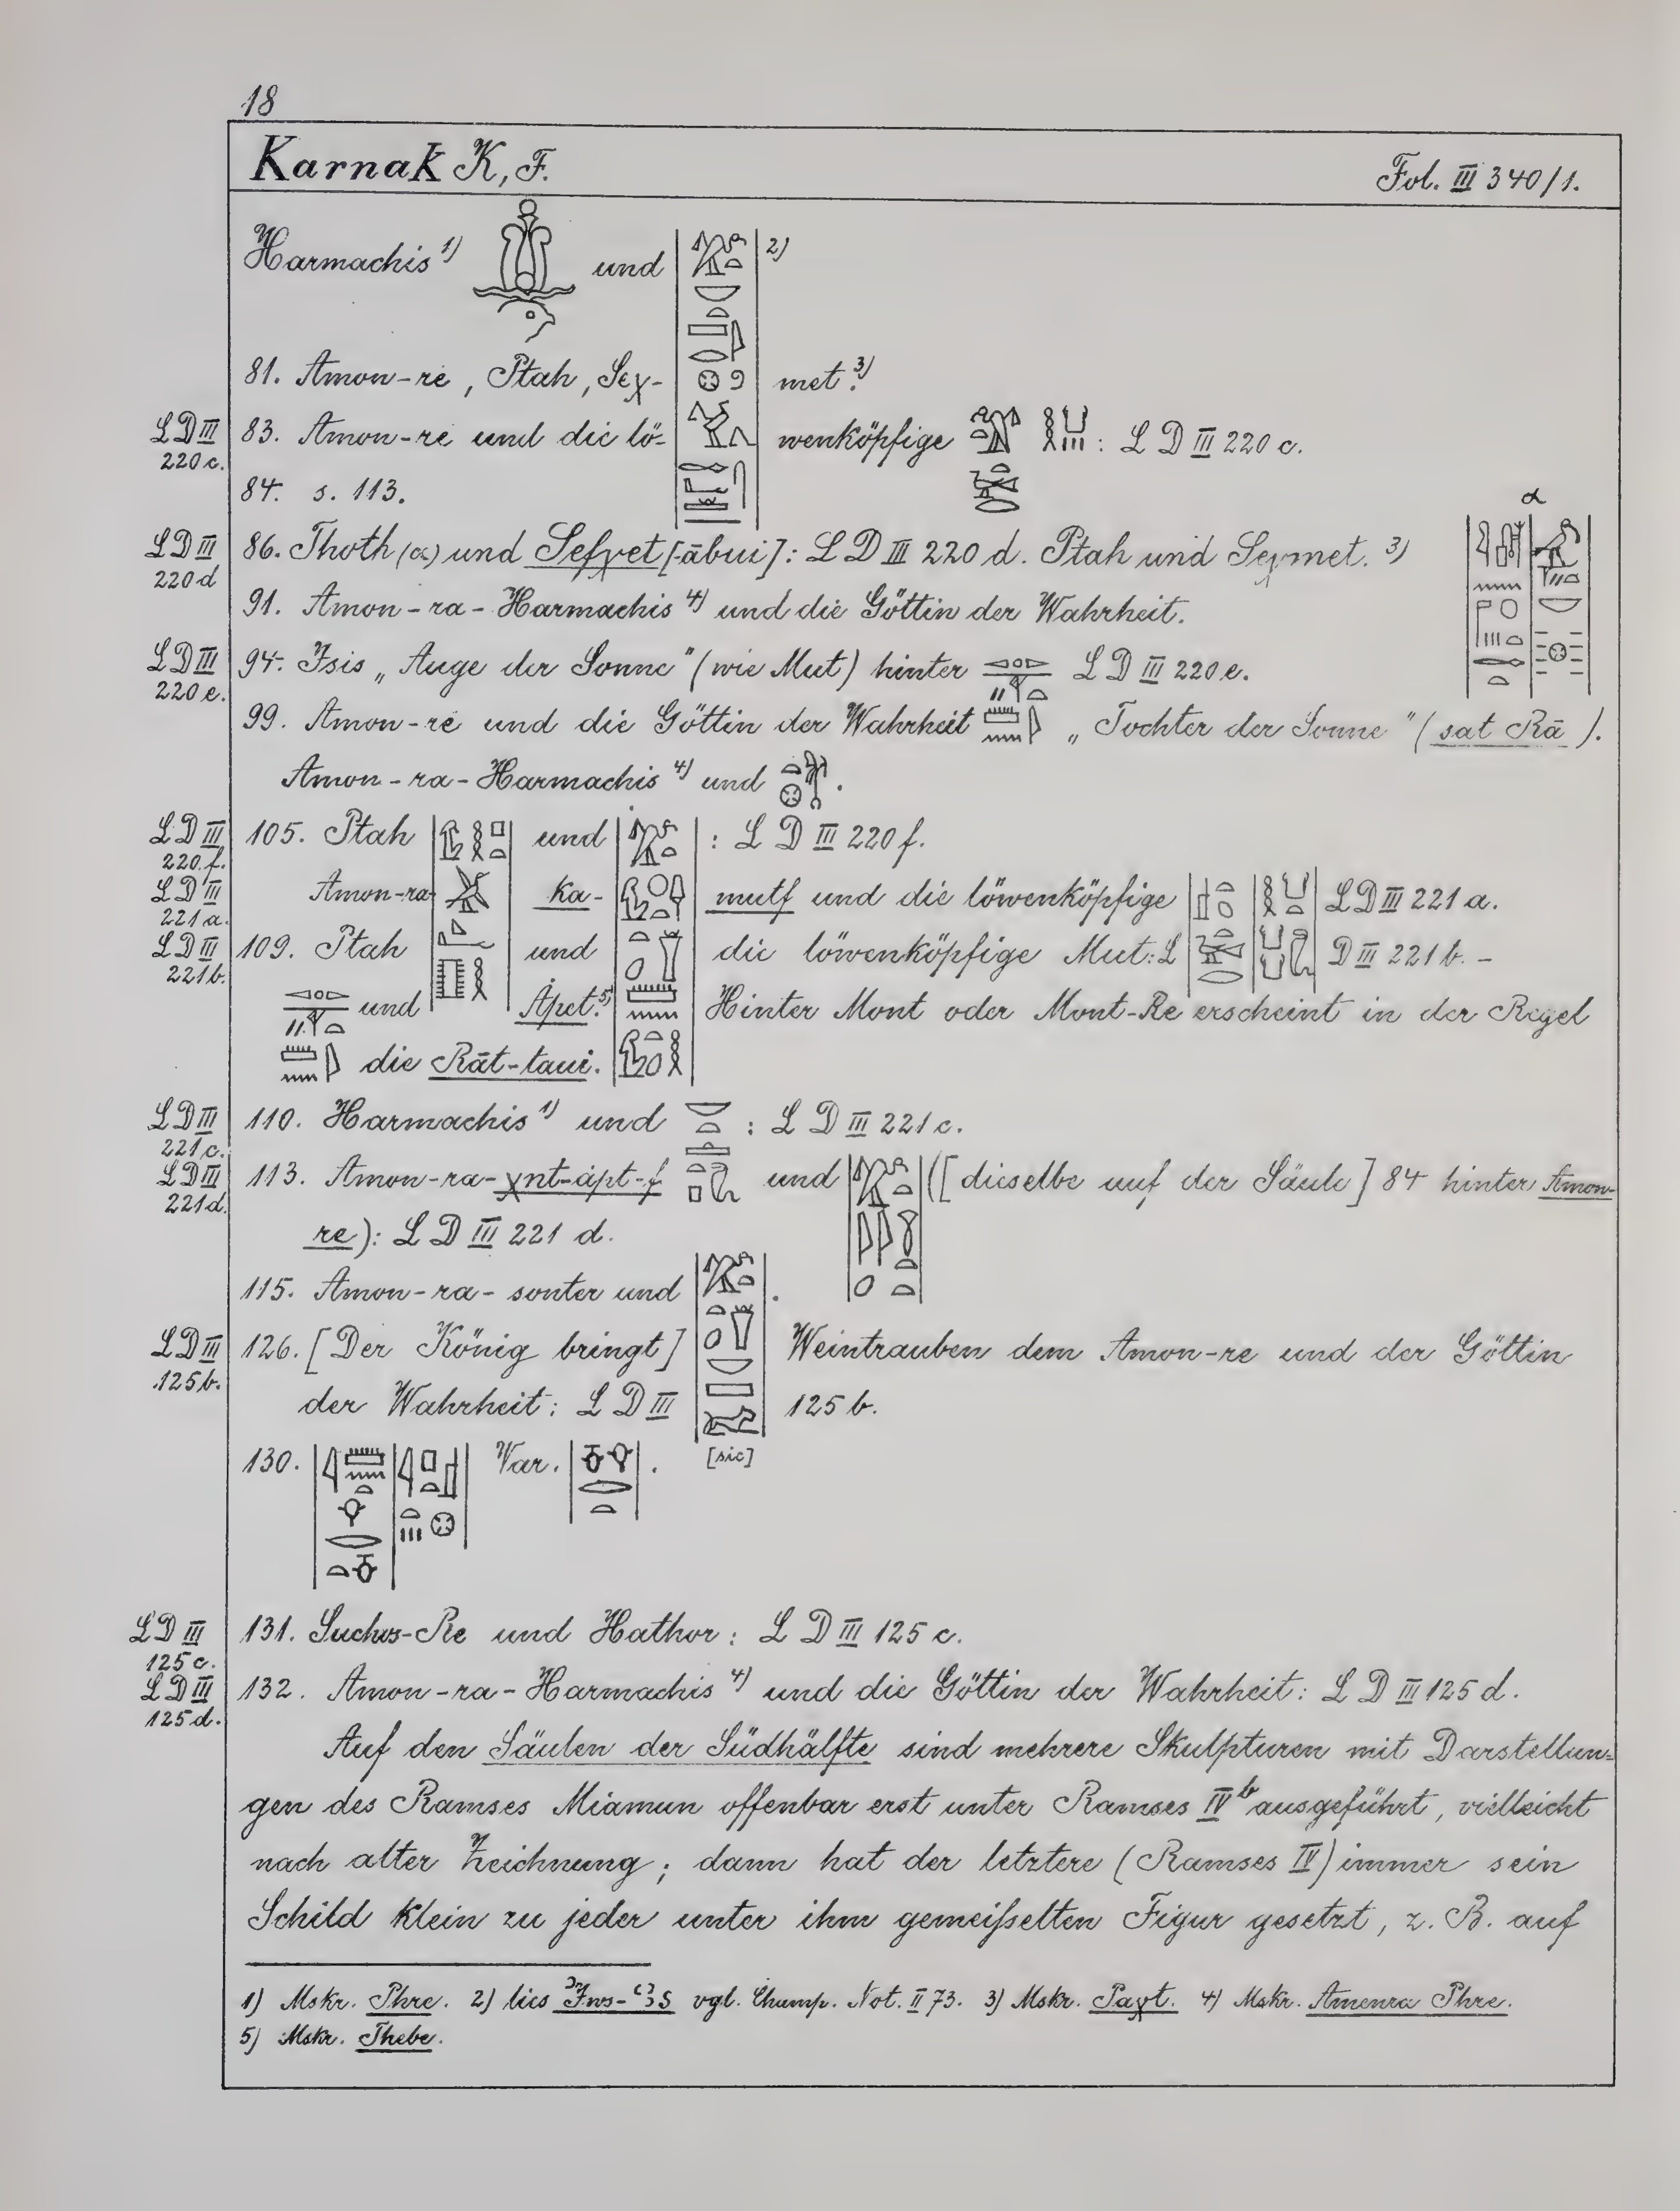 18
Karnak K, F. Fol. III 340/1.
Harmachis 1) und 2)
81. Amon-re, Ptah, Seχ- met. 3)
LD III 220 c. 83. Amon-re und die lö- wenköpfige : LD III 220 c.
84. s. 113.
α
LD III 220 d 86. Thoth (α) und Sefχet [-ābui]: LD III 220 d. Ptah und Seχmet. 3)
91. Amon-ra-Harmachis 4) und die Göttin der Wahrheit.
LD III 220 e. 94. Isis „Auge der Sonne" (wie Mut) hinter LD III 220 e.
99. Amon-re und die Göttin der Wahrheit „Tochter der Sonne" (sat Rā).
Amon-ra-Harmachis 4) und .
LD III 220 f. 105. Ptah und : LD III 220 f.
LD III 221 a. Amon-ra- ka- mutf und die löwenköpfige LD III 221 a.
LD III 221 b. 109. Ptah und die löwenköpfige Mut: L D III 221 b. –
und Ȧpet. 5) Hinter Mont oder Mont-Re erscheint in der Regel
die Rāt-taui.
LD III 221 c. 110. Harmachis 1) und : LD III 221 c.
LD III 221 d. 113. Amon-ra-χnt-ȧpt-f und ([dieselbe auf der Säule] 84 hinter Amon-
re): LD III 221 d.
115. Amon-ra-sonter und .
LD III 125 b. 126. [Der König bringt] Weintrauben dem Amon-re und der Göttin
der Wahrheit: LD III 125 b.
[sic]
130. Var. .
LD III 125 c. 131. Suchos-Re und Hathor: LD III 125 c.
LD III 125 d. 132. Amon-ra-Harmachis 4) und die Göttin der Wahrheit: LD III 125 d.
Auf den Säulen der Südhälfte sind mehrere Skulpturen mit Darstellun-
gen des Ramses Miamun offenbar erst unter Ramses IV b ausgeführt, vielleicht
nach alter Zeichnung; dann hat der letztere (Ramses IV) immer sein
Schild klein zu jeder unter ihm gemeißelten Figur gesetzt, z. B. auf
1) Mskr. Phre. 2) lies vgl. Champ. Not. II 73. 3) Mskr. Paχt. 4) Mskr. Amenra Phre.
5) Mskr. Thebe.